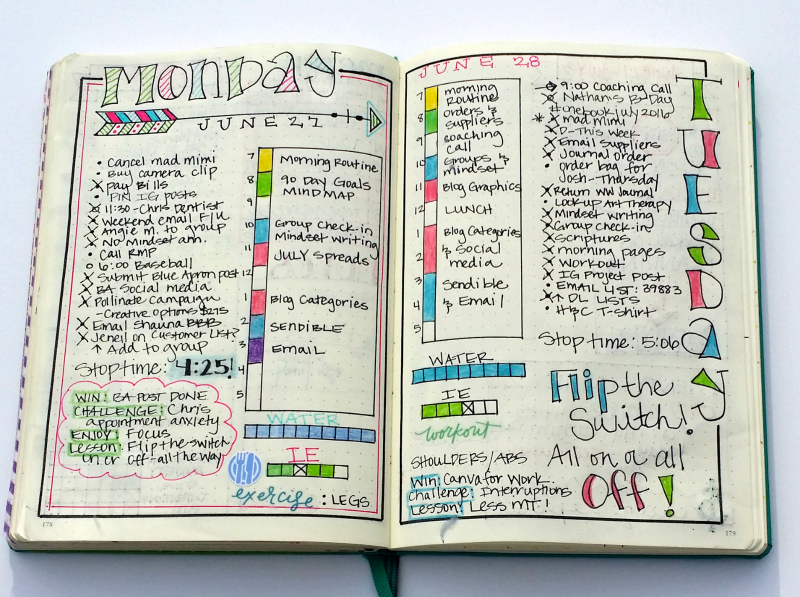 Monday
JUNE 27
• Cancel mad mimi
• Buy camera clip
X Pay Bills
• PIN IG posts
X 11:30 - Chris Dentist
X Weekend email F/U
X Angie M. to group
X No Mindset ann.
• Call RMP
○ 6:00 Baseball
X Submit Blue Apron post
X BA Social media
X Pollinate Campaign
- Creative options $275
X Email Shauna
X Jeneil on Customer List?
↑ Add to group
Stop time: 4:25!
WIN: BA POST DONE
CHALLENGE: Chris
appointment anxiety
ENJOY: FOCUS
Lesson: Flip the switch
on or off - all the way
7 Morning Routine
8 90 Day Goals
MINDMAP
9
10 Group Check-in
Mindset writing
11 JULY Spreads
12
1 Blog Categories
2 SENDIBLE
3 EMAIL
4
5
WATER
IE
exercise: LEGS
178
JUNE 28
7 morning
Routine
8 orders &
suppliers
9 coaching
call
10 Groups &
mindset
11 Blog Graphics
12 LUNCH
1 Blog Categories
2 & Social
media
3 Sendible
4 & Email
5
WATER
IE
workout
SHOULDERS/ABS
Win: Canva for Work
Challenge: Interruptions
Lesson: Less MT!
9:00 Coaching Call
Nathan's B-Day
#lineBook July 2016
* mad mimi
X D-This Week
X Email Suppliers
X Journal order
• order bag for
Josh - Thursday
X Return WW Journal
• Look up Art Therapy
X Mindset writing
X Group check-in
X Scriptures
X morning pages
X Workout
X IG Project Post
• EMAIL LIST: 39883
X ↑ DL LISTS
• HBC T-shirt
Stop time: 5:06
TUESDAY
Flip the
Switch!
All on or all
Off!
179